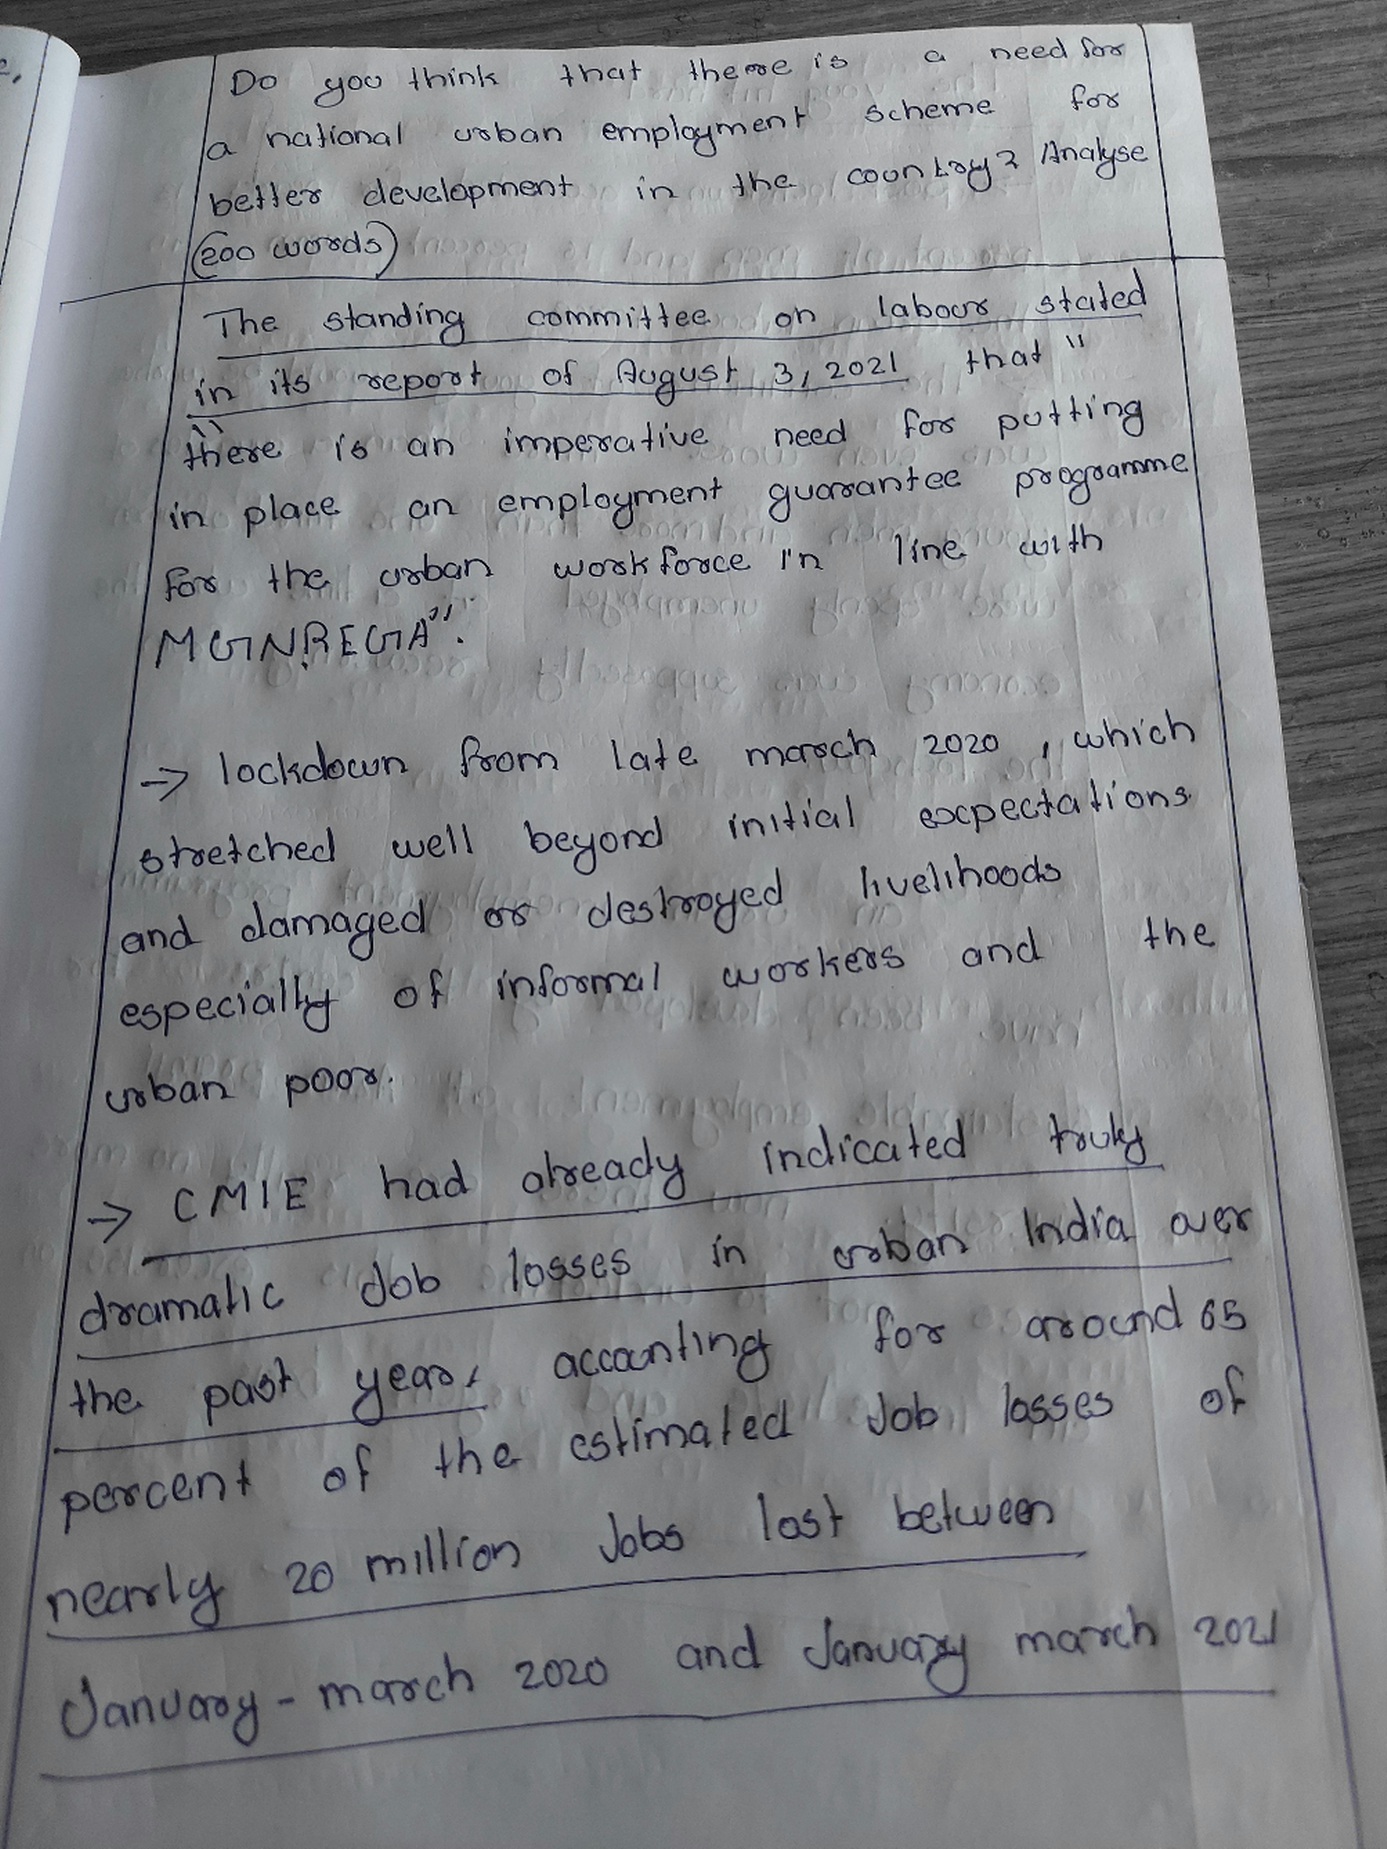 Do you think that there is a need for
a national urban employment scheme for
better development in the country? Analyse
(200 words)
The standing committee on labour stated
in its report of August 3, 2021 that "
"there is an imperative need for putting
in place an employment guarantee programme
for the urban workforce in line with
MGNREGA".
→ lockdown from late march 2020, which
stretched well beyond initial expectations
and damaged or destroyed livelihoods
especially of informal workers and the
urban poor.
→ CMIE had already indicated truly
dramatic Job losses in urban India over
the past year, accounting for around 65
percent of the estimated Job losses of
nearly 20 million Jobs lost between
January - march 2020 and January march 2021